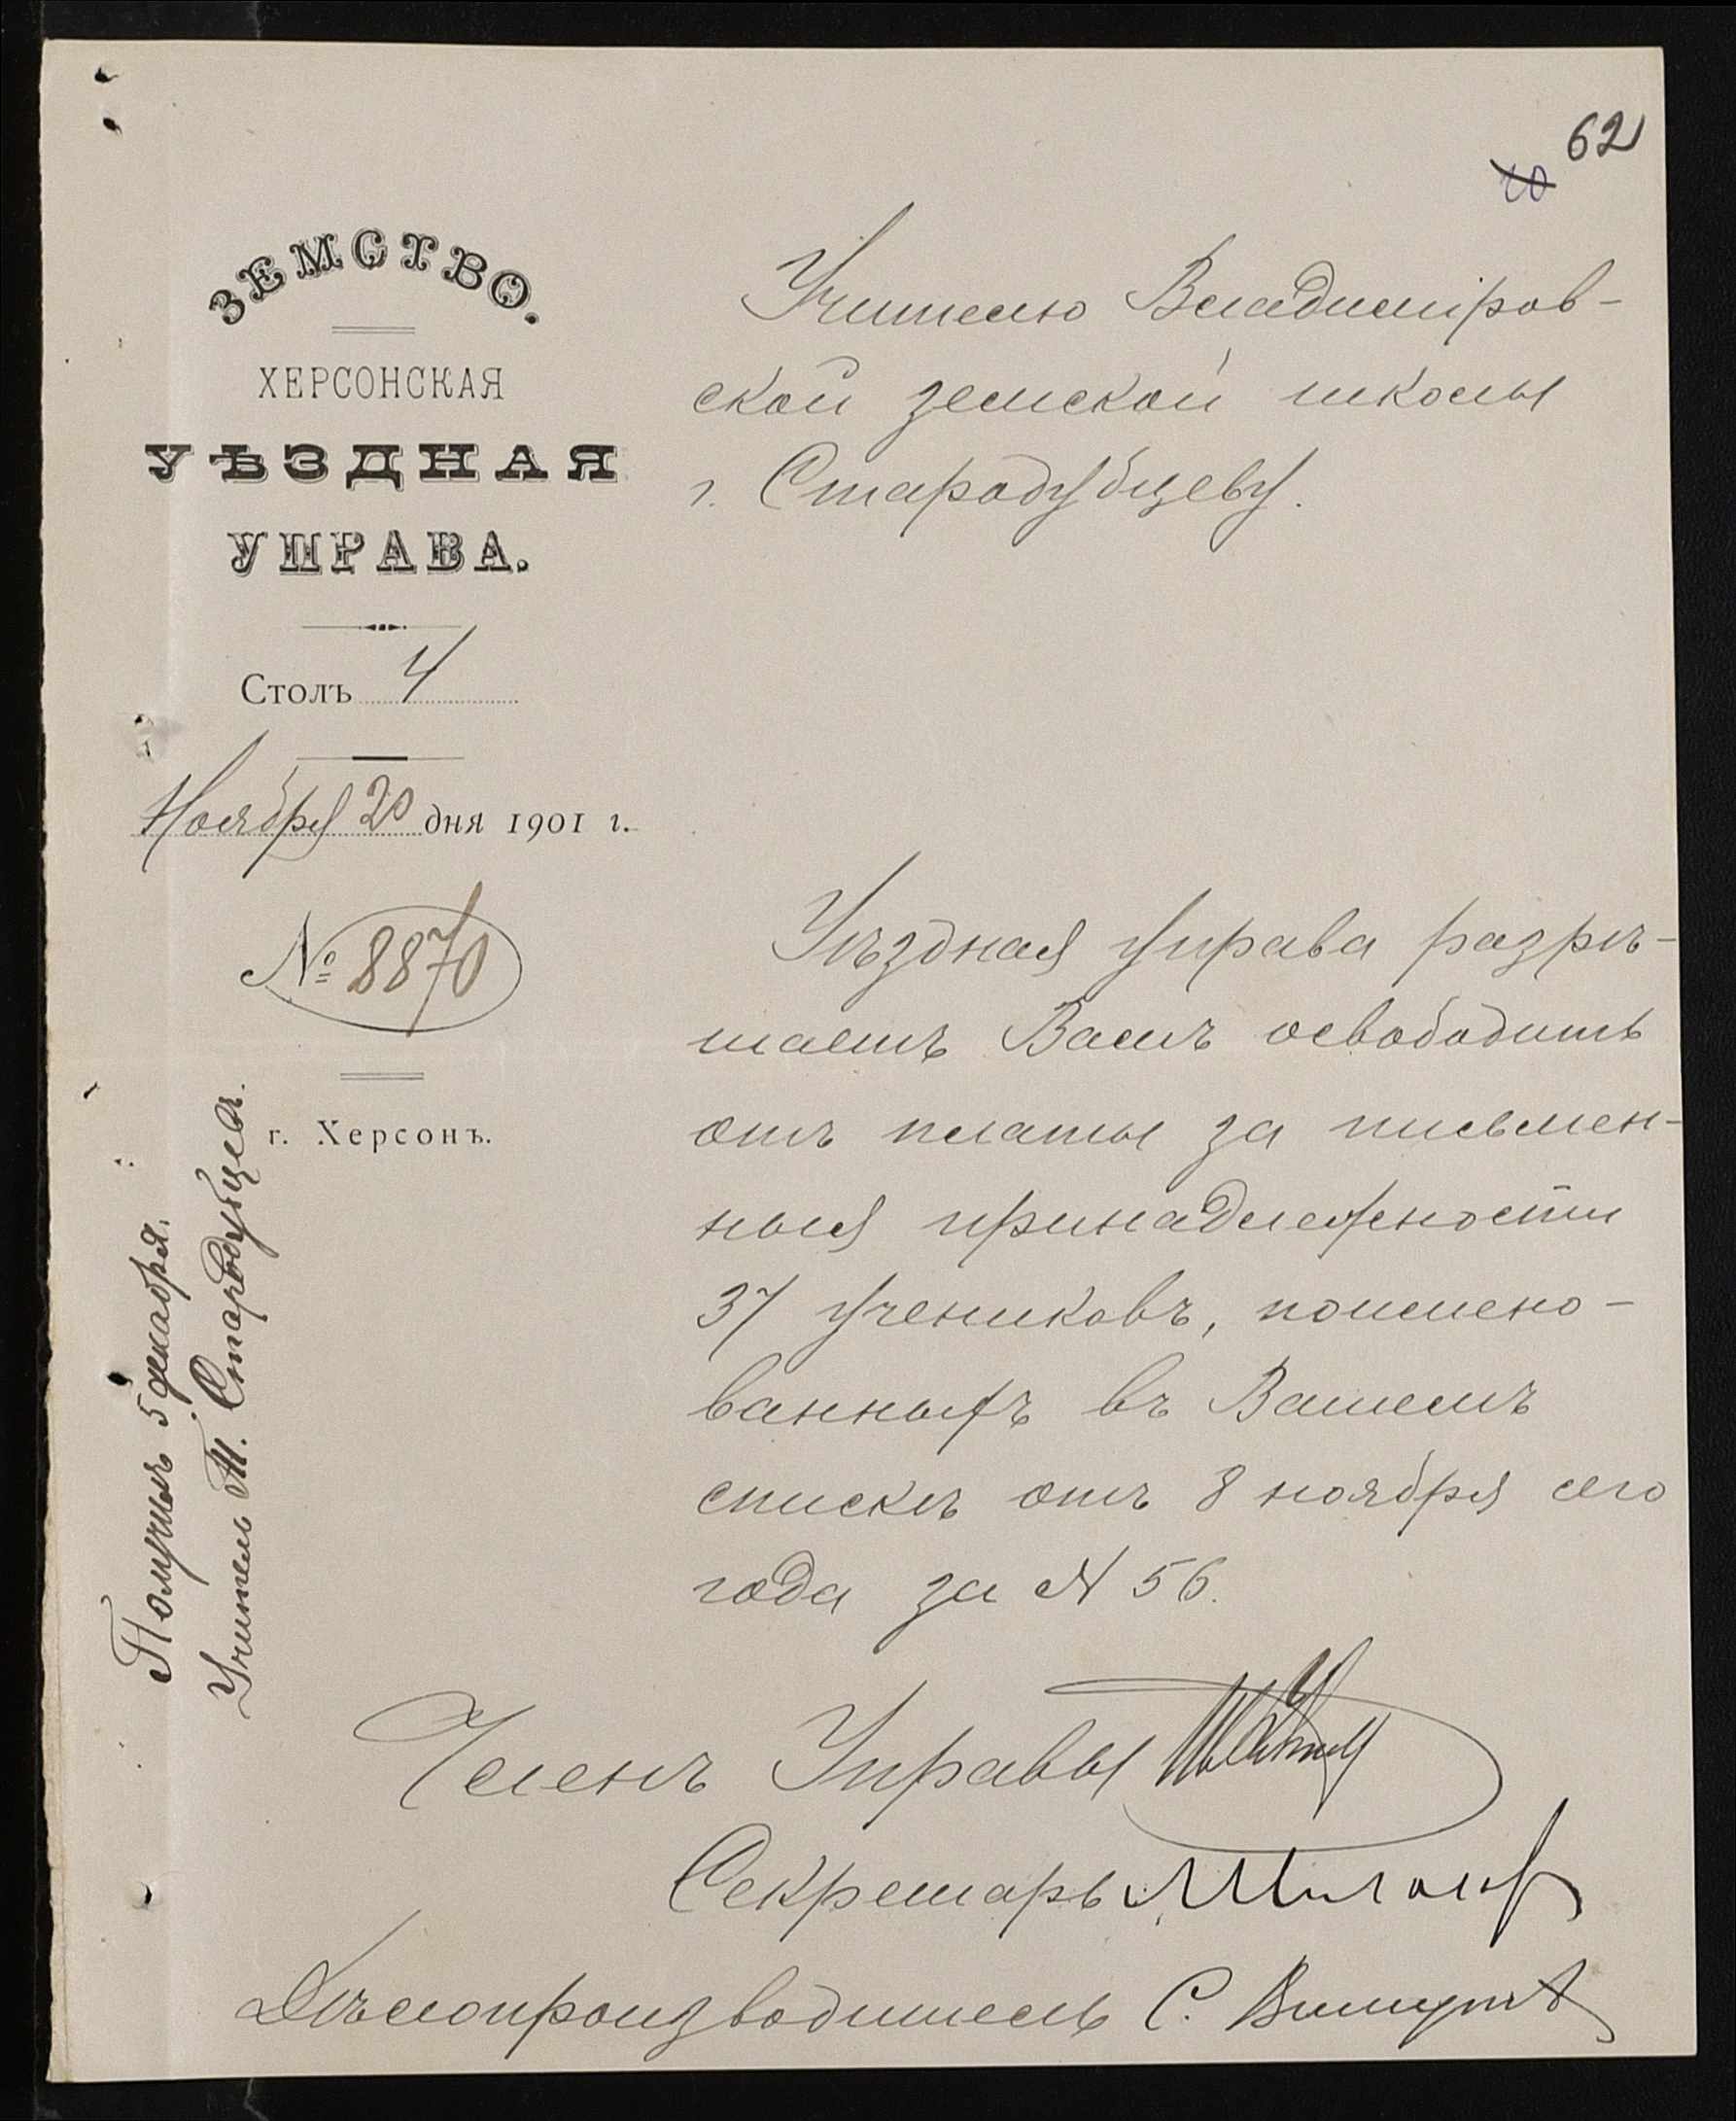 62
20
ЗЕМСТВО.
ХЕРСОНСКАЯ
УѢЗДНАЯ
УПРАВА.
Столъ 4
Ноября 20 дня 1901 г.
№ 8870
г. Херсонъ.
Получилъ 5 декабря.
Учитель Т. Стародубцевъ.
Учителю Владимiров-
ской земской школы
г. Стародубцеву.
Уѣздная управа разрѣ-
шаетъ Вамъ освободить
отъ платы за письмен-
ныя принадлежности
37 учениковъ, поимено-
ванныхъ въ Вашемъ
спискѣ отъ 8 ноября сего
года за № 56.
Членъ Управы
Секретарь
Дѣлопроизводитель С.